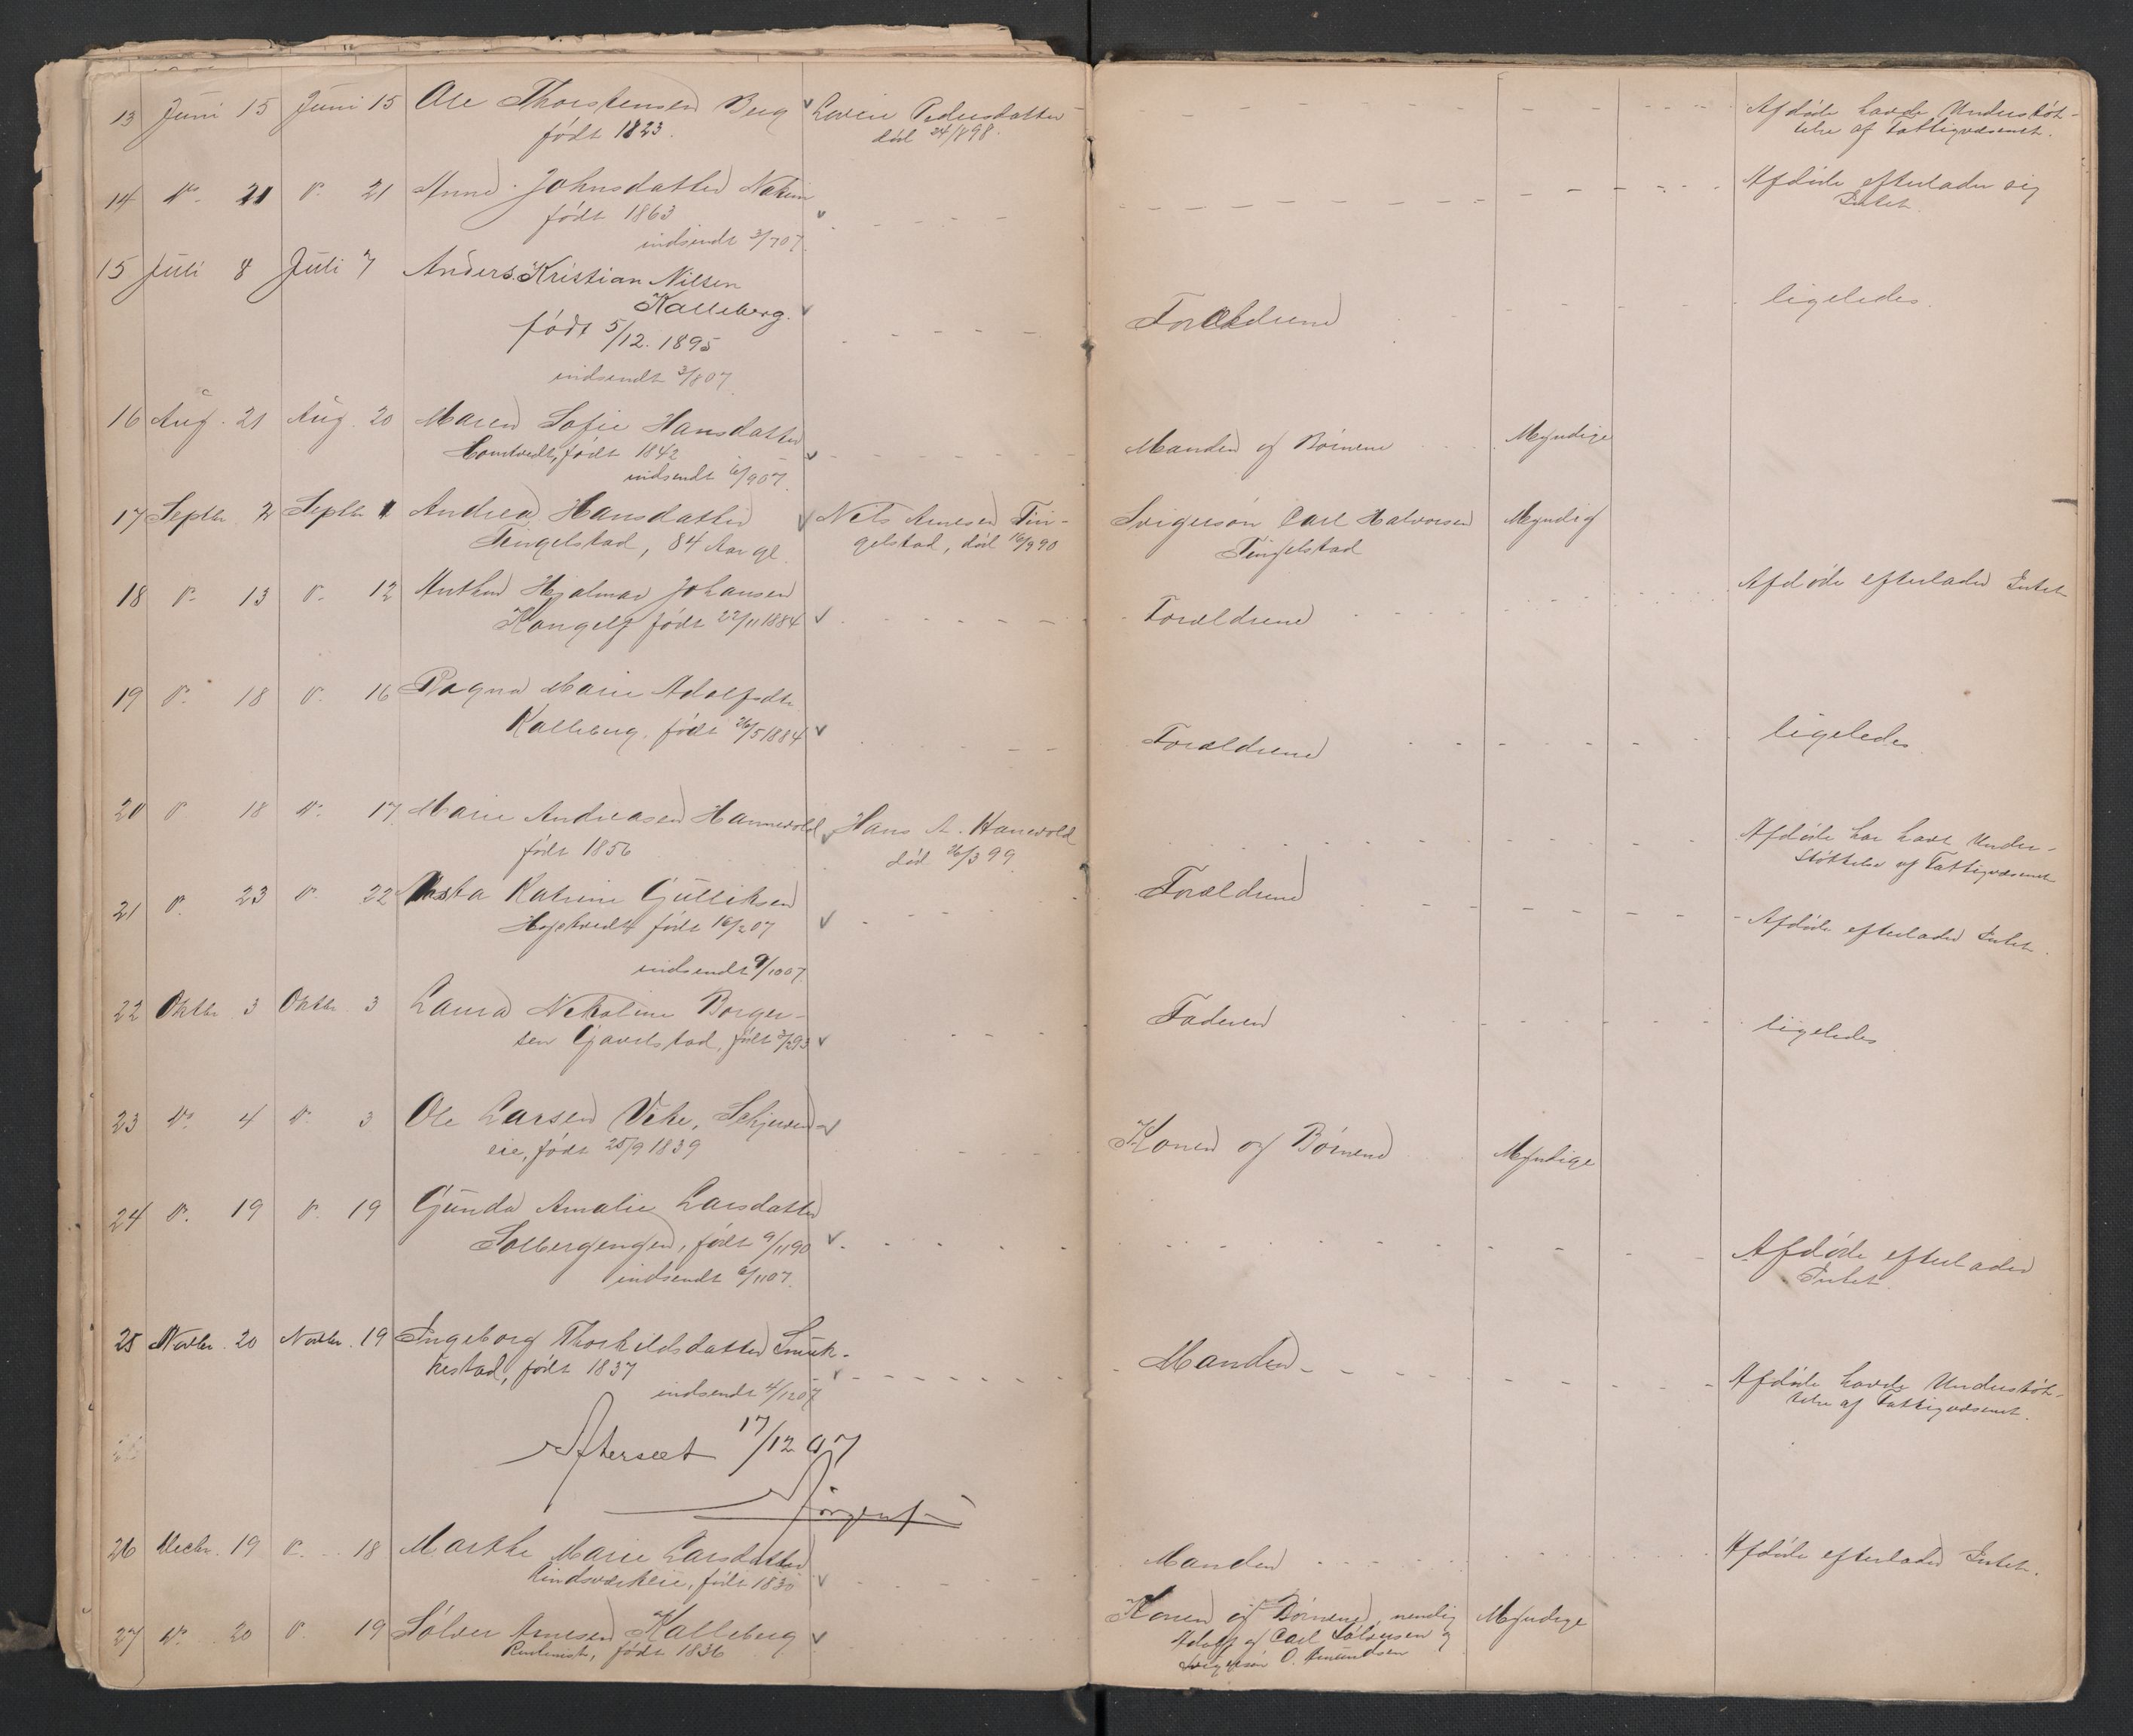 13 Juni 15 Juni 15 Ole Thorstensen Berg Lovise Pedersdatter Afdøde havde Understøt-
født 1823. død 24/898. telse af Fattigvæsenet.
14 " 21 " 21 Anne Johnsdatter Afdøde efterlader sig
født 1863 Intet.
indsendt 3/707.
15 Juli 8 Juli 7 Anders Kristian Nilsen
Kalleberg. Forældrene ligeledes.
født 5/12. 1895
indsendt 3/807
16 Aug. 21 Aug. 20 Maren Sofie Hansdatter Manden og Børnene Myndige
født 1842
indsendt 6/907.
17 Septbr 2 Septbr 1 Andrea Hansdatter Nils Arnesen Tin- Svigersøn Carl Halvorsen Myndig
Tingelstad, 84 Aar gl. gelstad, død 16/990 Tingelstad
18 " 13 " 12 Anthon Hjalmar Johansen Afdøde efterlader Intet
født 22/11 1884 Forældrene
19 " 18 " 16 Ragna Marie Adolfsdtr.
Kalleberg, født 26/5 1884 Forældrene ligeledes
20 " 18 " 17 Marie Andreasen Hannevold Hans A. Hanevold Afdøde har havt Under-
født 1856 død 26/3 99. støttelse af Fattigvæsenet
21 " 23 " 22 Asta Katrine Gulliksen Forældrene Afdøde efterlader Intet.
født 16/207
indsendt 9/1007
22 Oktbr 3 Oktbr. 3 Laura Nikoline Borger- Faderen ligeledes
sen Gavelstad, født 3/293
23 " 4 " 3 Ole Larsen Vike, Schjerven- Konen og Børnene Myndige
eie, født 25/9 1839
24 " 19 " 19 Gunda Amalie Larsdatter
Solbergengen, født 9/1190 Afdøde efterlader
indsendt 6/1107. Intet.
25 Novbr. 20 Novbr. 19 Ingeborg Thorkildsdatter Smuk- Manden
kestad, født 1837 Afdøde havde Understøt-
indsendt 4/1207 telse af Fattigvæsenet.
Efterseet 17/12 07
26 Decbr. 19 " 18 Marthe Marie Larsdatter Manden Afdøde efterlader Intet.
født 1830
27 " 20 " 19 Sølver Arnesen Kalleberg Konen og Børnene, nemlig Myndige
født 1836 Adolf og Carl Sølversen og
Svigersøn O. Amundsen